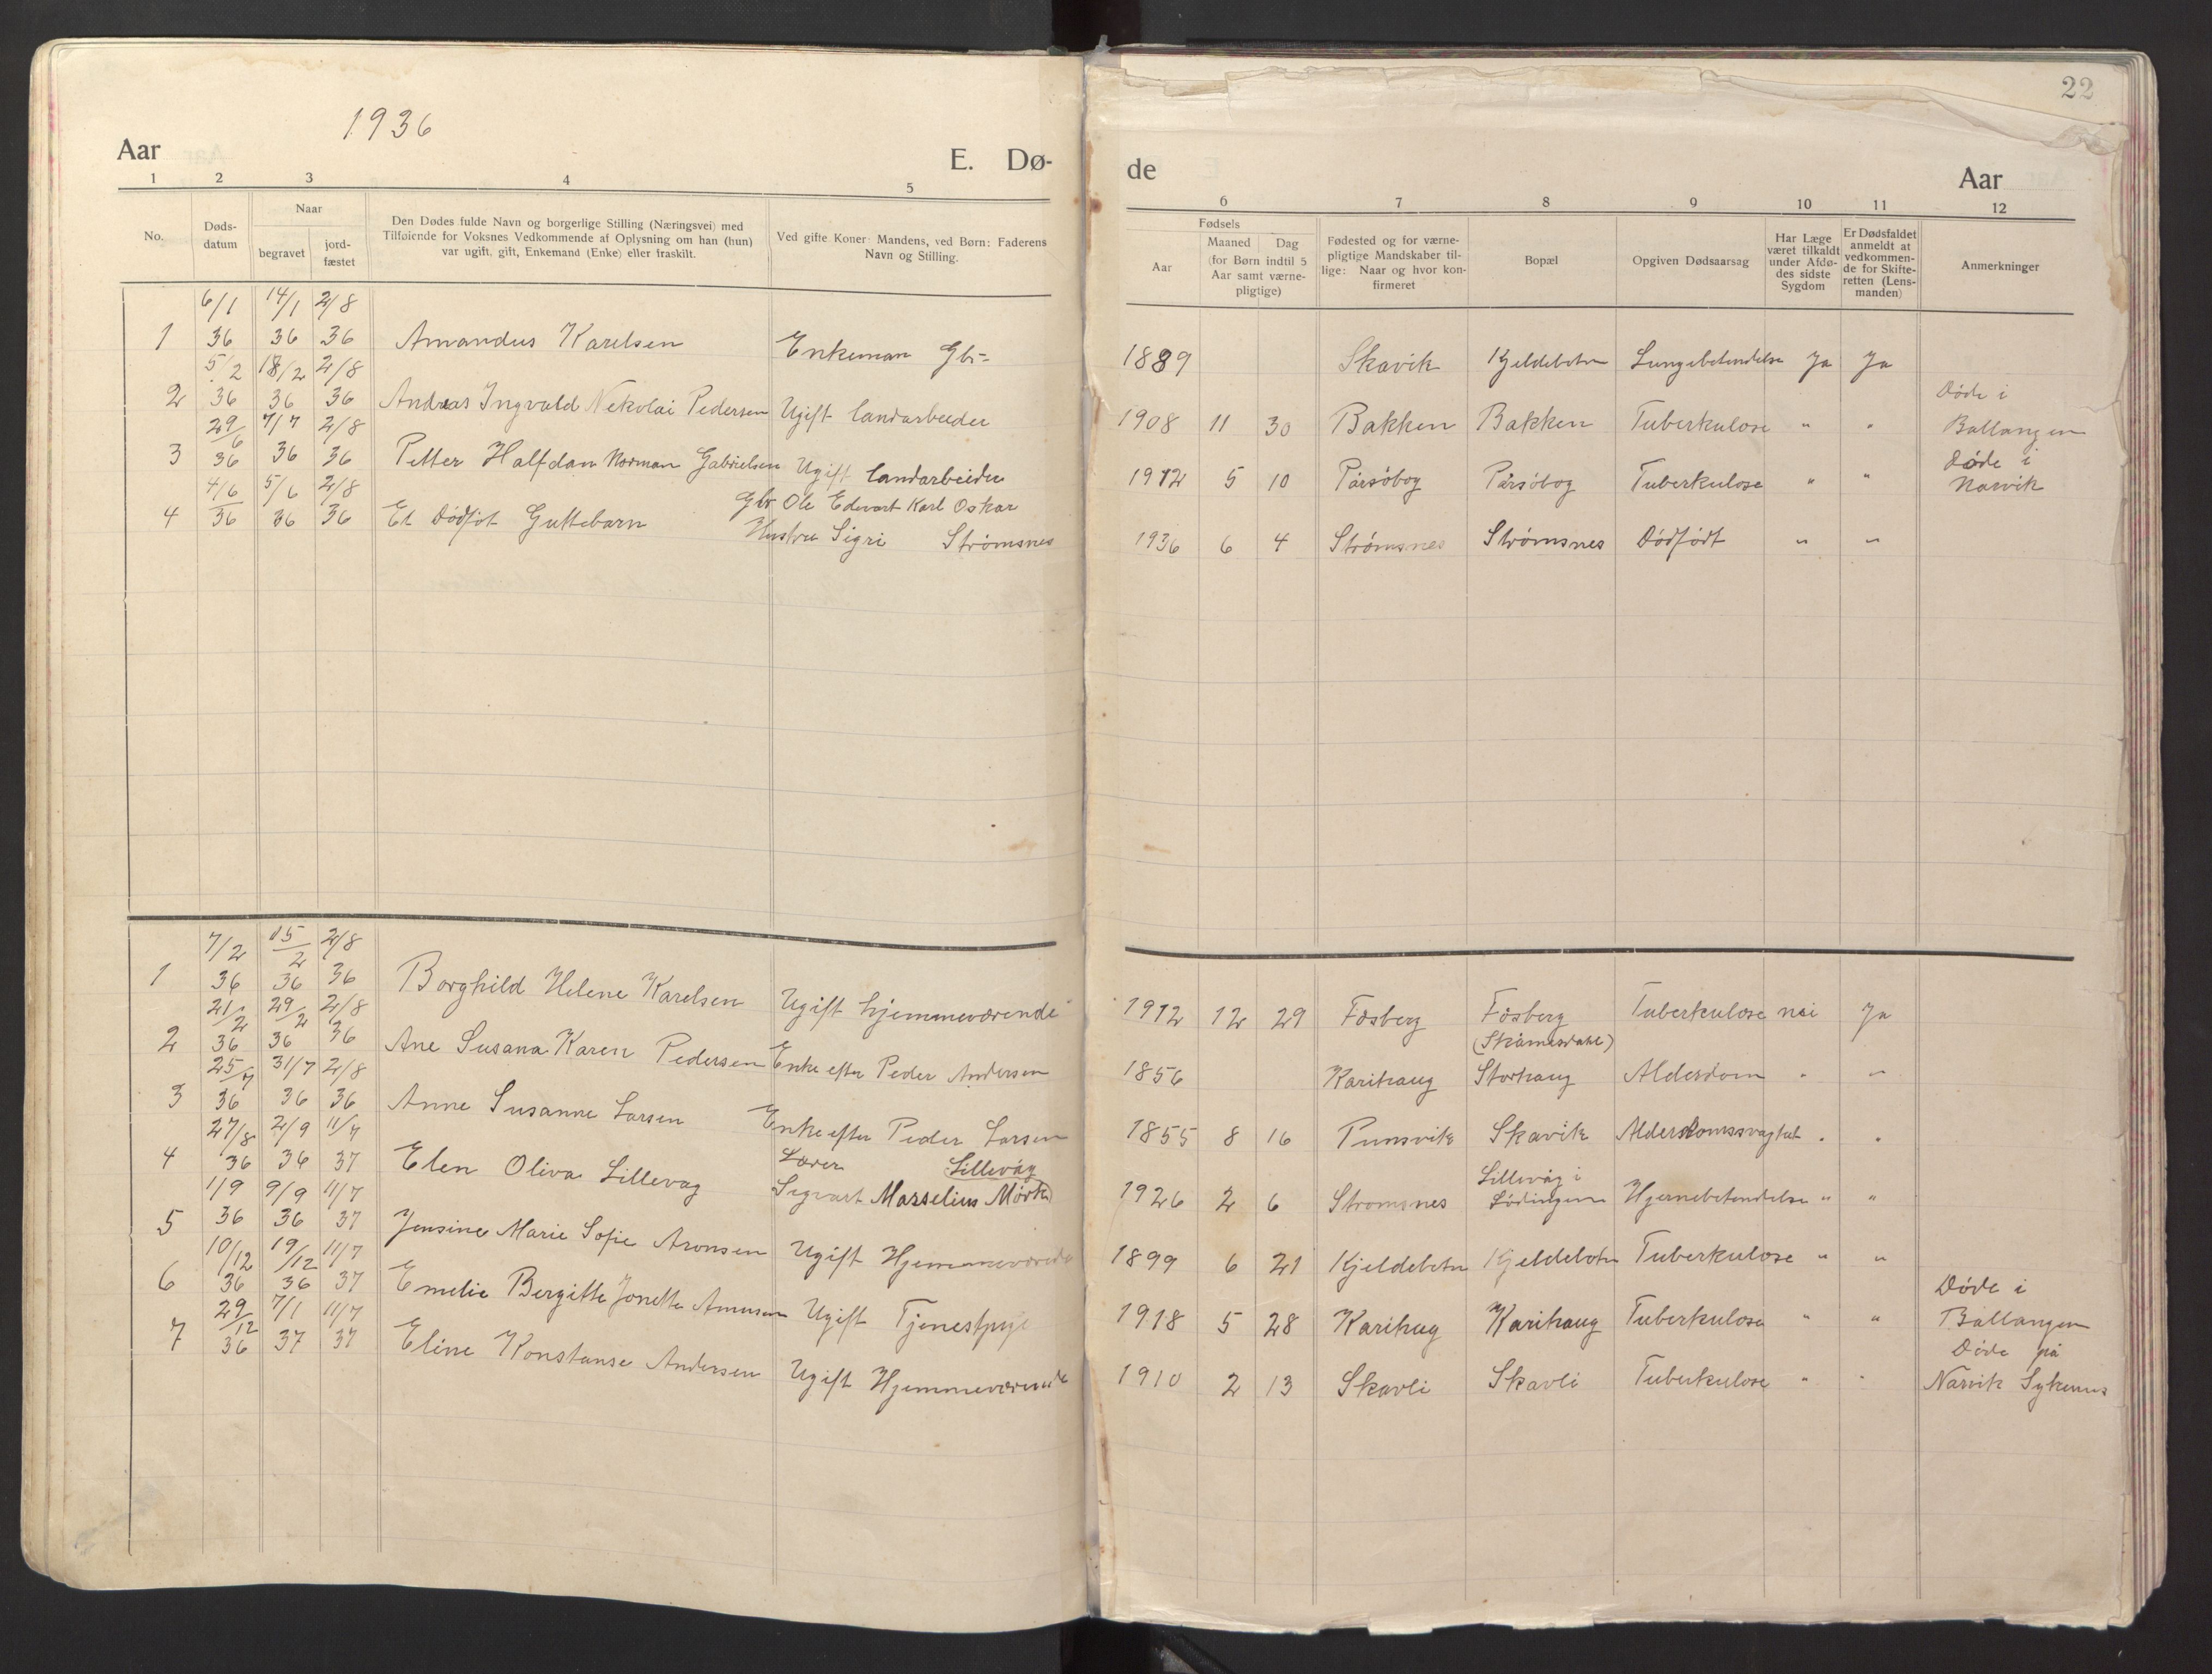 22
1936
Aar E. Dø-
de Aar
1 2 3 4 5
6 7 8 9 10 11 12
No.
Døds-
datum
Naar
begravet
jord-
fæstet
Den Dødes fulde Navn og borgerlige Stilling (Næringsvei) med
Tilføiende for Voksnes Vedkommende af Oplysning om han (hun)
var ugift, gift, Enkemand (Enke) eller fraskilt.
Ved gifte Koner: Mandens, ved Børn: Faderens
Navn og Stilling.
Fødsels
Aar
Maaned Dag
(for Børn indtil 5
Aar samt værne-
pligtige)
Fødested og for værne-
pligtige Mandskaber til-
lige: Naar og hvor kon-
firmeret
Bopæl
Opgiven Dødsaarsag
Har Læge
været tilkaldt
under Afdø-
des sidste
Sygdom
Er Dødsfaldet
anmeldt at
vedkommen-
de for Skifte-
retten (Lens-
manden)
Anmerkninger
6/1 14/1 2/8
1 36 36 36 Amandus Karelsen Enkeman Gbr- 1889 Skavik Kjeldebotn Lungebetendelse Ja Ja
5/2 18/2 2/8 Døde i
2 36 36 36 Andreas Ingvald Nekolai Pedersen Ugift landarbeider 1908 11 30 Bakken Bakken Tuberkulose " " Ballangen
29/6 7/7 2/8 Døde i
3 36 36 36 Petter Halfdan Norman Gabrielsen Ugift landarbeider 1912 5 10 Pårsöbog Pårsöbog Tuberkulose " " Narvik
4/6 5/6 2/8 Gbr Ole Edevart Karl Oskar
4 36 36 36 Et Dødføt Guttebarn Hustru Sigri Strømsnes 1936 6 4 Strømsnes Strømsnes Dødfødt " "
7/2 15/2 2/8
1 36 36 36 Borghild Helene Karelsen Ugift hjemmeværende 1912 12 29 Fosberg Fosberg Tuberkulose nei Ja
21/2 29/2 2/8
2 36 36 36 Ane Susana Karen Pedersen Enke efter Peder Andersen 1856 Karihaug Storhaug Alderdom " "
25/7 31/7 2/8
3 36 36 36 Anne Susanne Larsen Enke efter Peder Larsen 1855 8 16 Punsvik Skavik " "
27/8 2/9 11/7 Lærer Lillevåg Lillevåg i
4 36 36 37 Elen Oliva Lillevag Sigvart Marselius Mörk 1926 2 6 Stromsnes Lødingen Hjernebetendelse " "
1/9 9/9 11/7
5 36 36 37 Jensine Marie Sofie Aronsen Ugift Hjemmeværende 1899 6 21 Kjeldebotn Kjeldebotn Tuberkulose " "
10/12 19/12 11/7 Døde i
6 36 36 37 Emelie Bergitte Jonette Amunsen Ugift Tjenestpige 1918 5 28 Karihug Karihaug Tuberkulose " " Ballangen
29/12 7/1 11/7 Døde på
7 36 37 37 Eline Konstanse Andersen Ugift Hjemmeværende 1910 2 13 Skavli Skavli Tuberkulose " " Narvik Sykehus